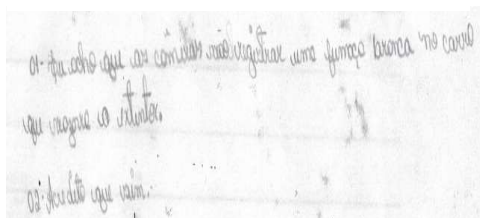 01- Eu acho que as câmeras não registrar uma fumaça branca no carro
que mostra o extintor.
02- Acredito que sim.